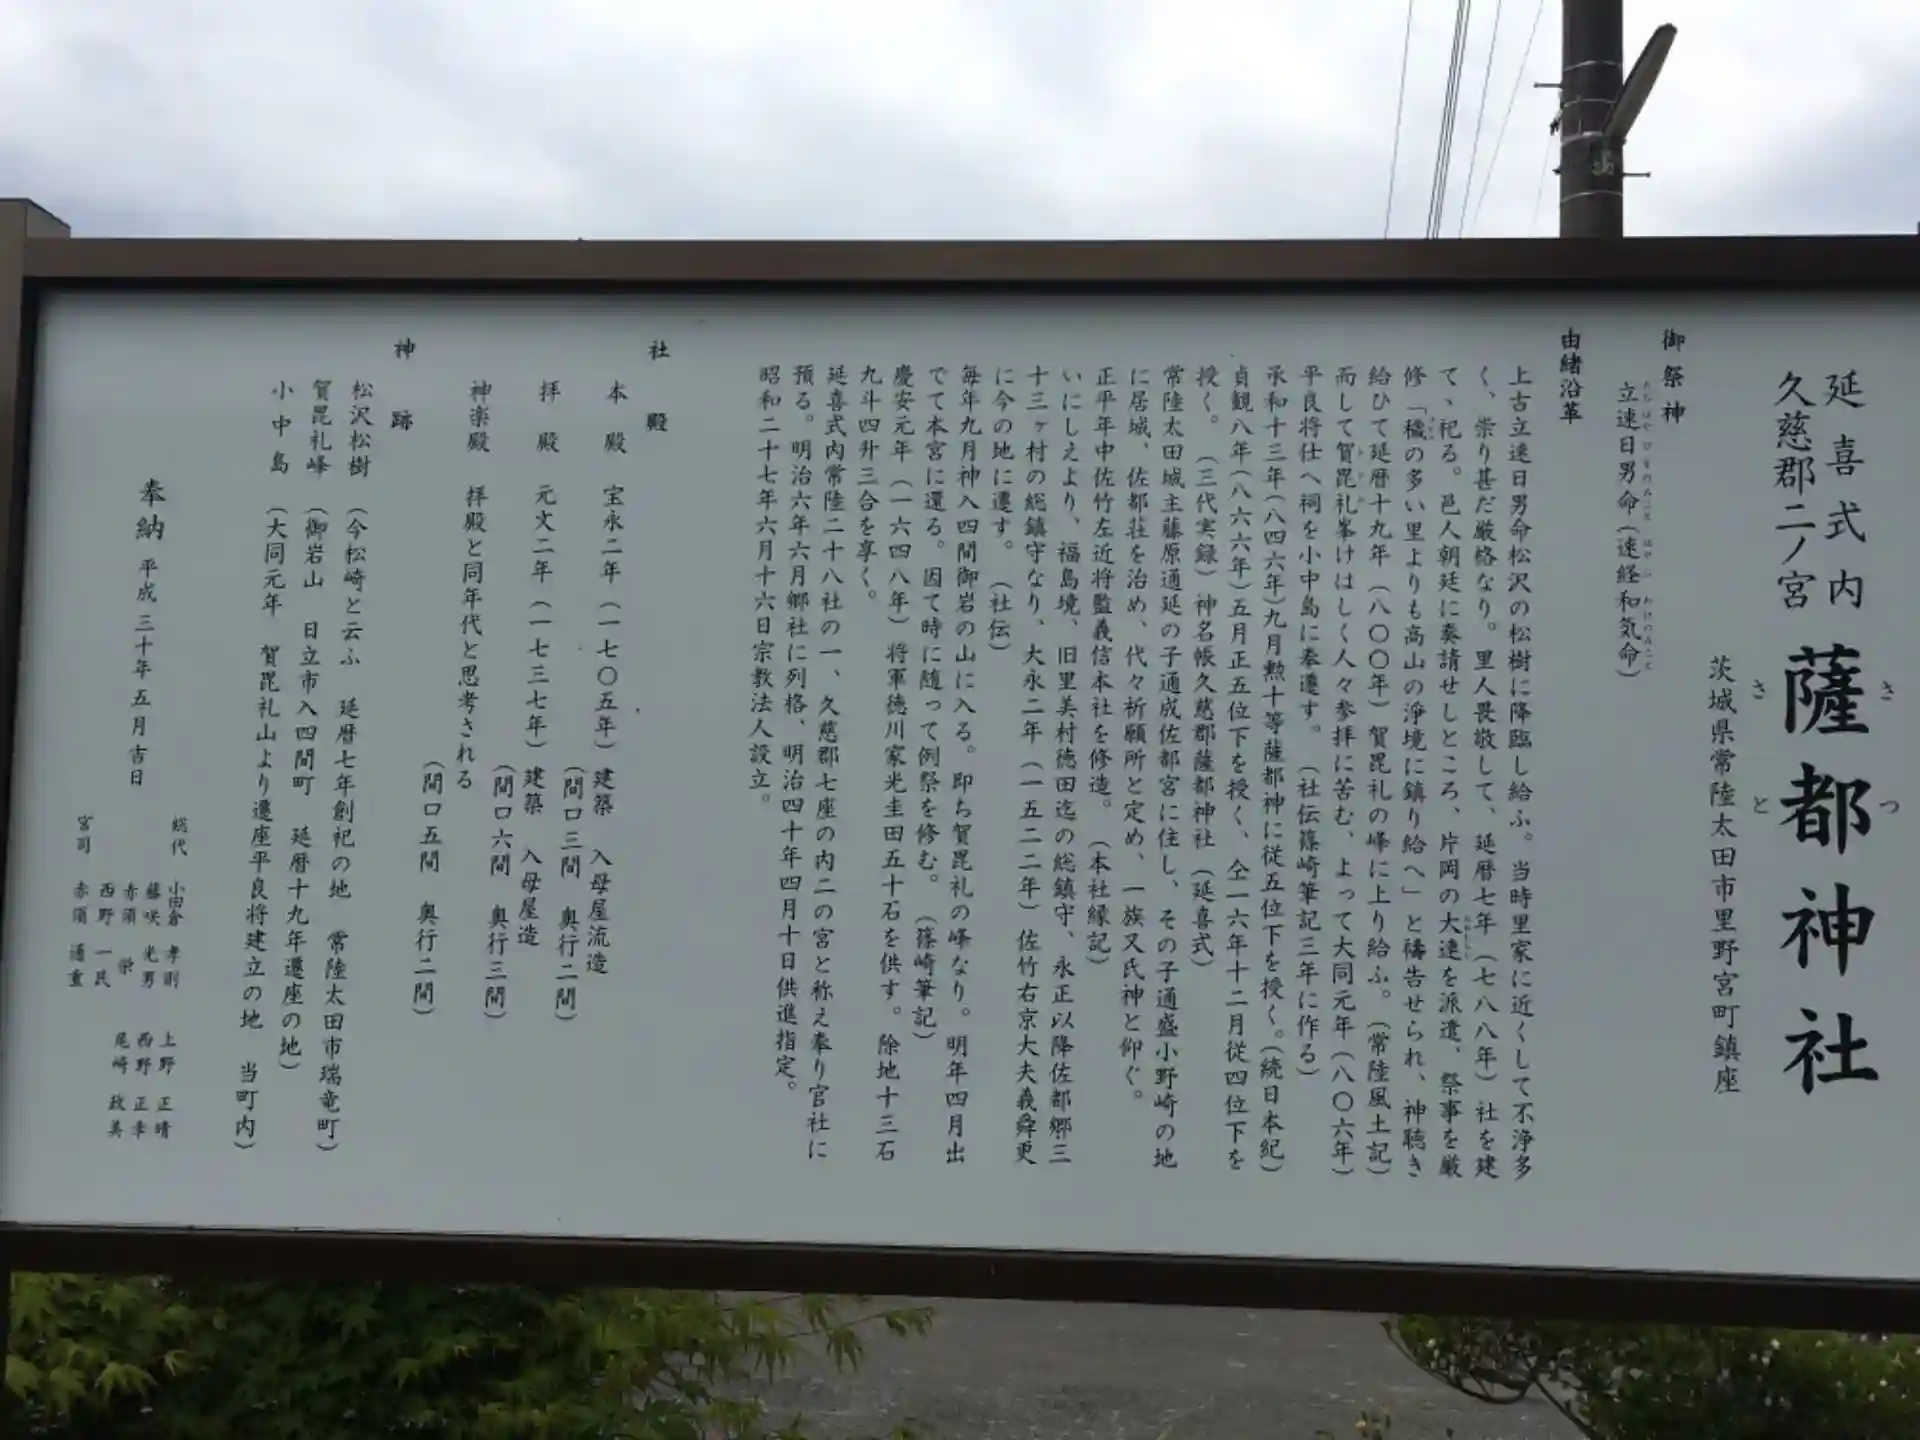 延喜式内
久慈郡二ノ宮
薩都神社
さつ
さと
茨城県常陸太田市里野宮町鎮座
御祭神
立速日男命(速経和気命)
たちはやひをのみこと はやふわけのみこと
由緒沿革
上古立速日男命松沢の松樹に降臨し給ふ。当時里家に近くして不浄多
く、崇り甚だ厳格なり。里人畏敬して、延暦七年(七八八年)社を建
て、祀る。邑人朝廷に奏請せしところ、片岡の大連を派遣、祭事を厳
おおむらじ
修「穢の多い里よりも高山の浄境に鎮り給へ」と禱告せられ、神聴き
けがれ
給ひて延暦十九年(八〇〇年)賀毘礼の峰に上り給ふ。(常陸風土記)
而して賀毘礼峯けはしく人々参拝に苦む、よって大同元年(八〇六年)
平良将仕へ祠を小中島に奉遷す。(社伝篠崎筆記三年に作る)
承和十三年(八四六年)九月勲十等薩都神に従五位下を授く。(続日本紀)
貞観八年(八六六年)五月正五位下を授く、仝一六年十二月従四位下を
授く。(三代実録)神名帳久慈郡薩都神社(延喜式)
常陸太田城主藤原通延の子通成佐都宮に住し、その子通盛小野崎の地
に居城、佐都荘を治め、代々祈願所と定め、一族又氏神と仰ぐ。
正平年中佐竹左近将監義信本社を修造。(本社縁記)
いにしえより、福島境、旧里美村徳田迄の総鎮守、永正以降佐都郷三
十三ヶ村の総鎮守なり、大永二年(一五二二年)佐竹右京大夫義舜更
に今の地に遷す。(社伝)
毎年九月神入四間御岩の山に入る。即ち賀毘礼の峰なり。明年四月出
でて本宮に還る。因て時に随って例祭を修む。(篠崎筆記)
慶安元年(一六四八年)将軍徳川家光圭田五十石を供す。除地十三石
九斗四升三合を享く。
延喜式内常陸二十八社の一、久慈郡七座の内二の宮と称え奉り官社に
預る。明治六年六月郷社に列格、明治四十年四月十日供進指定。
昭和二十七年六月十六日宗教法人設立。
社殿
本殿 宝永二年(一七〇五年)建築 入母屋流造
(間口三間 奥行二間)
拝殿 元文二年(一七三七年)建築 入母屋造
(間口六間 奥行三間)
神楽殿 拝殿と同年代と思考される
(間口五間 奥行二間)
神跡
松沢松樹(今松崎と云ふ 延暦七年創祀の地 常陸太田市瑞竜町)
賀毘礼峰(御岩山 日立市入四間町 延暦十九年遷座の地)
小中島(大同元年 賀毘礼山より遷座平良将建立の地 当町内)
奉納 平成三十年五月吉日
総代 小田倉孝則 上野正晴
藤咲光男 西野正幸
赤須栄 尾崎政美
西野一民
宮司 赤須通重